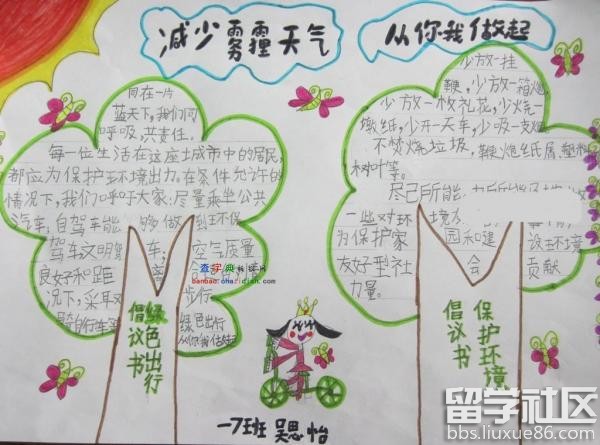 减少雾霾天气
从你我做起
同在一片
蓝天下,我们同
呼吸,共责任。
每一位生活在这座城市中的居民,
都应为保护环境出力。在条件允许的
情况下,我们呼吁大家:尽量乘坐公共
汽车;自驾车能够做到环保
驾车文明驾车;空气质量
良好和距
况下,采取步行
骑自行车等绿色出行
从你我做起
绿色出行
倡议书
少放一挂
鞭,少放一箱炮,
少放一枚礼花,少烧一
墩纸,少开一天车,少吸一支烟
不焚烧垃圾,鞭炮纸屑,塑料
树叶等。
尽己所能,
一些对环境
为保护家园和建设环境
友好型社会贡献
力量。
保护环境
倡议书
查字典
banbao.chazidian.com
一7班 吴思怡
留学社区
bbs.liuxue86.com